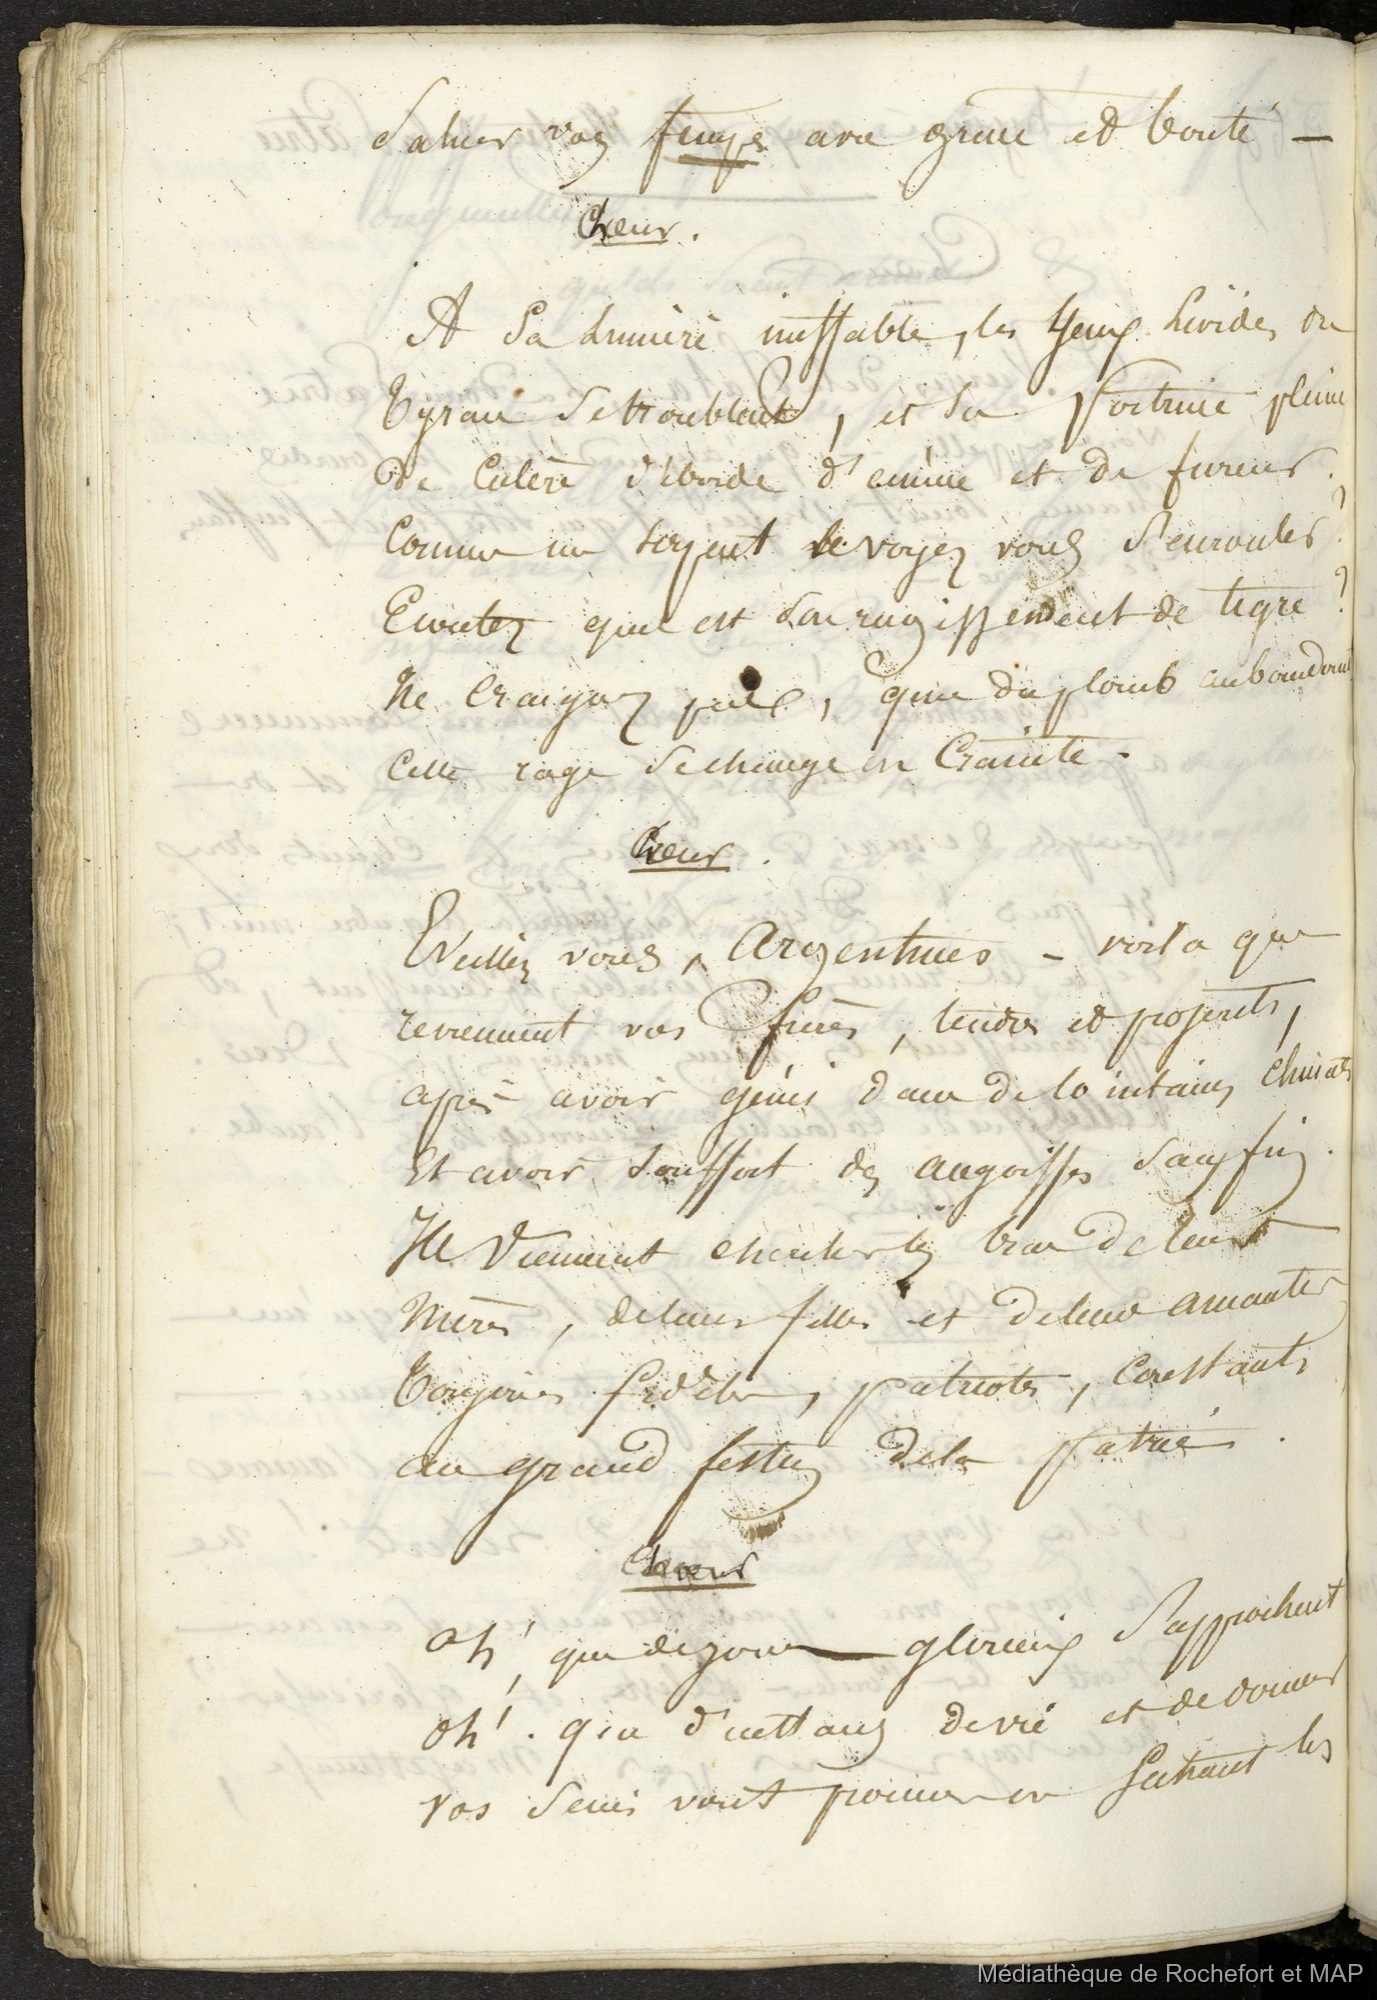 Saluer vos temps avec grace et bonté —
Chœur.
A Sa lumière ineffable, les yeux livides du
Tyran se troublent, et sa Poitrine pleine
De Colère déborde d'écume et de fureur.
Comme un serpent le voyez vous s'enrouler ?
Ecoutez quel est son rugissement de tigre ?
Ne Craignez pas, que du plomb
Cette rage se change en Crainte -
Chœur.
Eveillez vous, Argentines - voila que
reviennent vos frères, tendres et proscrits,
après avoir gémi dans de lointains Climats
Et avoir souffert des angoisses sans fin.
Ils Viennent chercher les bras de leurs
Mères, de leurs filles et de leurs amantes
Toujours fidèles, patriotes, Constants
au grand festin de la Patrie.
Chœur
Oh ! que de jours glorieux s'approchent
Oh ! que d'instans de vie et de
vos seins vont